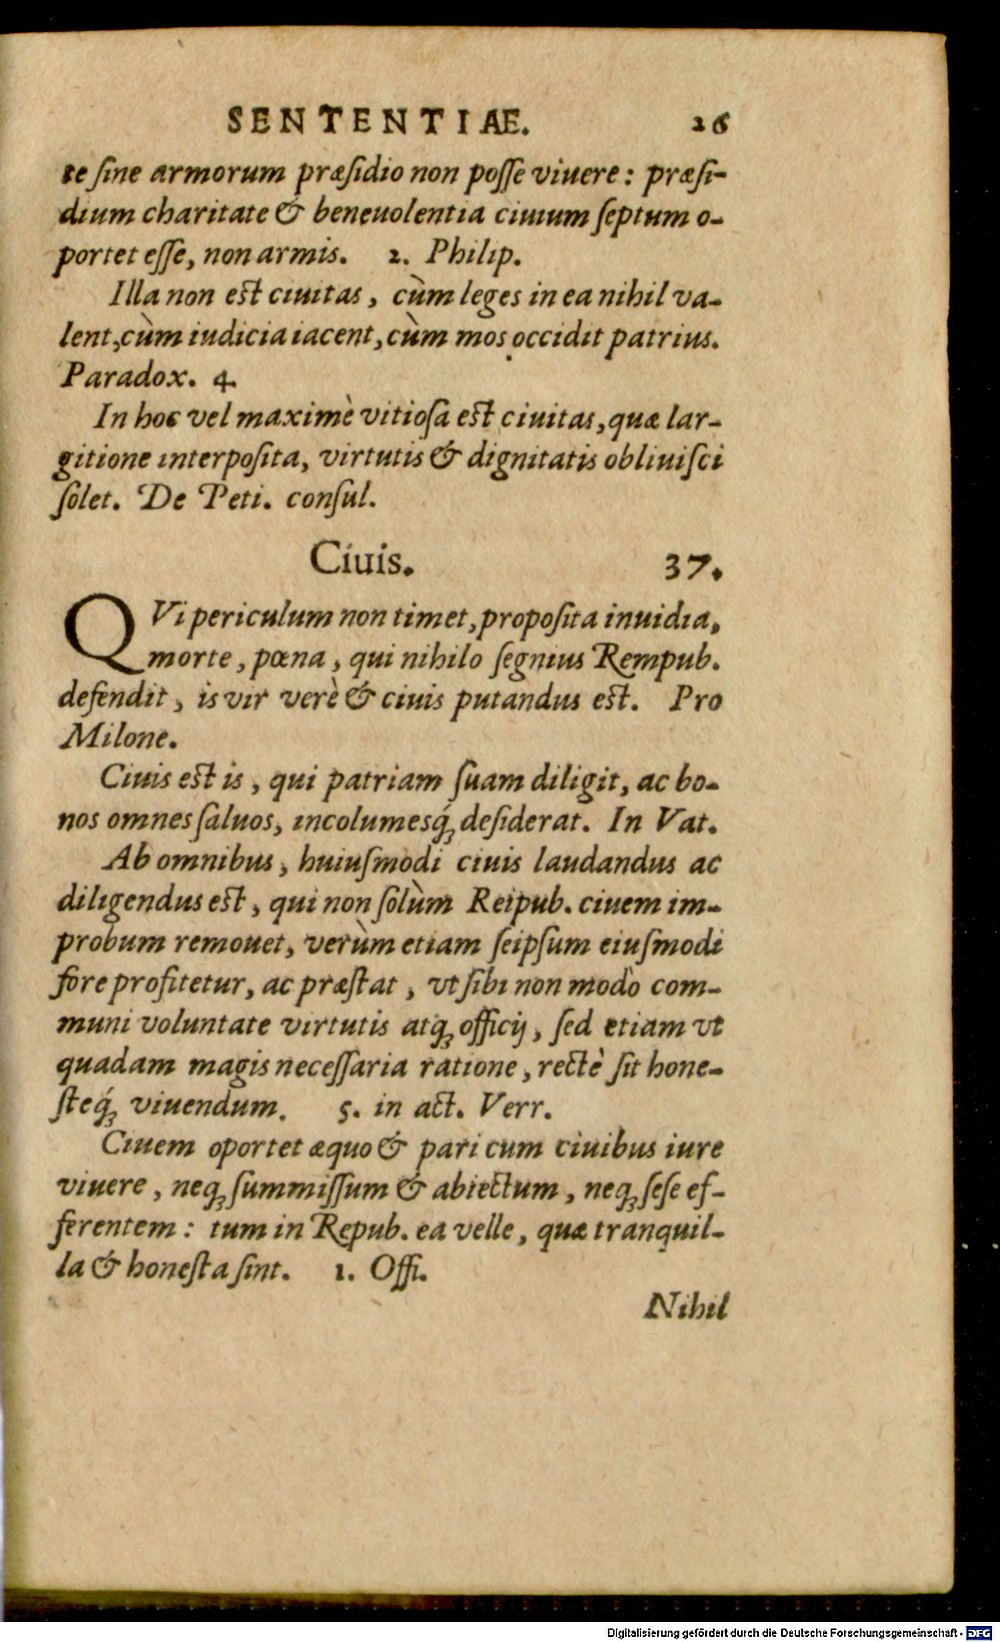 SENTENTIAE. 26
te ſine armorum præſidio non poſſe viuere: præſi-
dium charitate & beneuolentia ciuium ſeptum o-
portet eſſe, non armis. 2. Philip.
Illa non est ciuitas, cùm leges in ea nihil va-
lent, cùm iudicia iacent, cùm mos occidit patrius.
Paradox. 4.
In hoc vel maximè vitioſa est ciuitas, quæ lar-
gitione interpoſita, virtutis & dignitatis obliuiſci
ſolet. De Peti. conſul.
Ciuis. 37.
QVi periculum non timet, propoſita inuidia,
morte, pœna, qui nihilo ſegnius Rempub.
defendit, is vir verè & ciuis putandus est. Pro
Milone.
Ciuis est is, qui patriam ſuam diligit, ac bo-
nos omnes ſaluos, incolumesq́ꝫ deſiderat. In Vat.
Ab omnibus, huiuſmodi ciuis laudandus ac
diligendus est, qui non ſolùm Reipub. ciuem im-
probum remouet, verùm etiam ſeipſum eiuſmodi
fore profitetur, ac præſtat, vt ſibi non modò com-
muni voluntate virtutis atqꝫ officij, ſed etiam vt
quadam magis neceſſaria ratione, rectè ſit hone-
ſteq́ꝫ viuendum. 5. in act. Verr.
Ciuem oportet æquo & pari cum ciuibus iure
viuere, neqꝫ ſummiſſum & abiectum, neqꝫ ſeſe ef-
ferentem: tum in Repub. ea velle, quæ tranquil-
la & honeſta ſint. 1. Offi.
Nihil
Digitalisierung gefördert durch die Deutsche Forschungsgemeinschaft - DFG